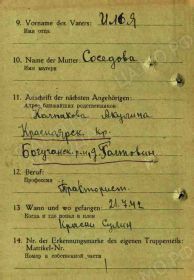 9. Vorname des Vaters: Илья
Имя отца
10. Name der Mutter: Соседова
Имя матери
11. Anschrift der nächsten Angehörigen:
Адрес ближайших родственников
Колпакова Акулина
Красноярск. кр.
Богучанск. р-н д. Гольтовин
12. Beruf:
Профессия
Тракторист.
13. Wann und wo gefangen: 21.7.42
Когда и где попал в плен
Красный Сулин
14. Nr. der Erkennungsmarke des eigenen Truppenteils:
Matrikel-Nr.
Номер в собственной части